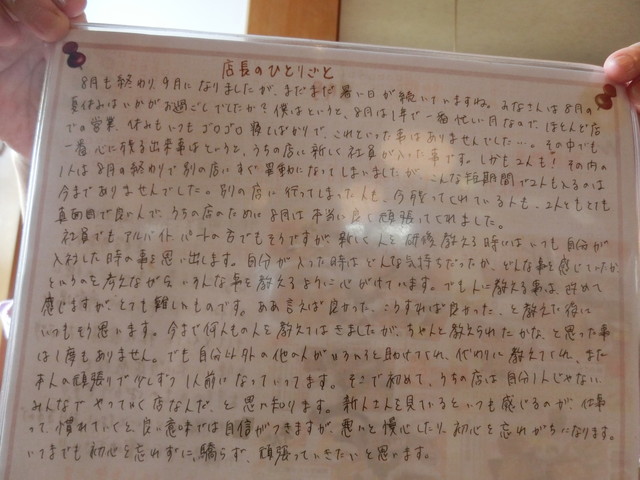 店長のひとりごと
8月も終わり、9月になりましたが、まだまだ暑い日が続いていますね。みなさんは8月の
夏休みはいかがお過ごしでしたか?僕はというと、8月は1年で一番忙しい月なので、ほとんど店
での営業、休みもいつもゴロゴロ寝てばかりで、これといった事はありませんでした…。その中でも
一番心に残る出来事はというと、うちの店に新しく社員が入った事です。しかも2人も!その内の
1人は8月の終わりで別の店にすぐ異動になってしまいましたが、こんな短期間で2人も入るのは
今までありませんでした。別の店に行ってしまった人も、今残ってくれている人も、2人ともとても
真面目で良い人で、うちの店のために8月は本当に良く頑張ってくれました。
社員でもアルバイト、パートの方でもそうですが、新しく人を研修、教える時にはいつも自分が
入社した時の事を思い出します。自分が入った時はどんな気持ちだったか、どんな事を感じていたか、
というのを考えながら、いろんな事を教えるように心がけています。でも人に教える事は、改めて
感じますが、とても難しいものです。ああ言えば良かった、こうすれば良かった、と教えた後に
いつもそう思います。今まで何人もの人を教えてはきましたが、ちゃんと教えられたかな、と思った事
は1度もありません。でも自分以外の他の人がいろいろと助けてくれ、代わりに教えてくれ、また
本人の頑張りで少しずつ1人前になっていってます。そこで初めて、うちの店は自分1人じゃない
みんなでやっていく店なんだ、と思い知ります。新人さんを見ているといつも感じるのが、仕事
って、慣れていくと、良い意味では自信がつきますが、悪いと慢心したり、初心を忘れがちになります。
いつまでも初心を忘れずに、驕らず、頑張っていきたいと思います。